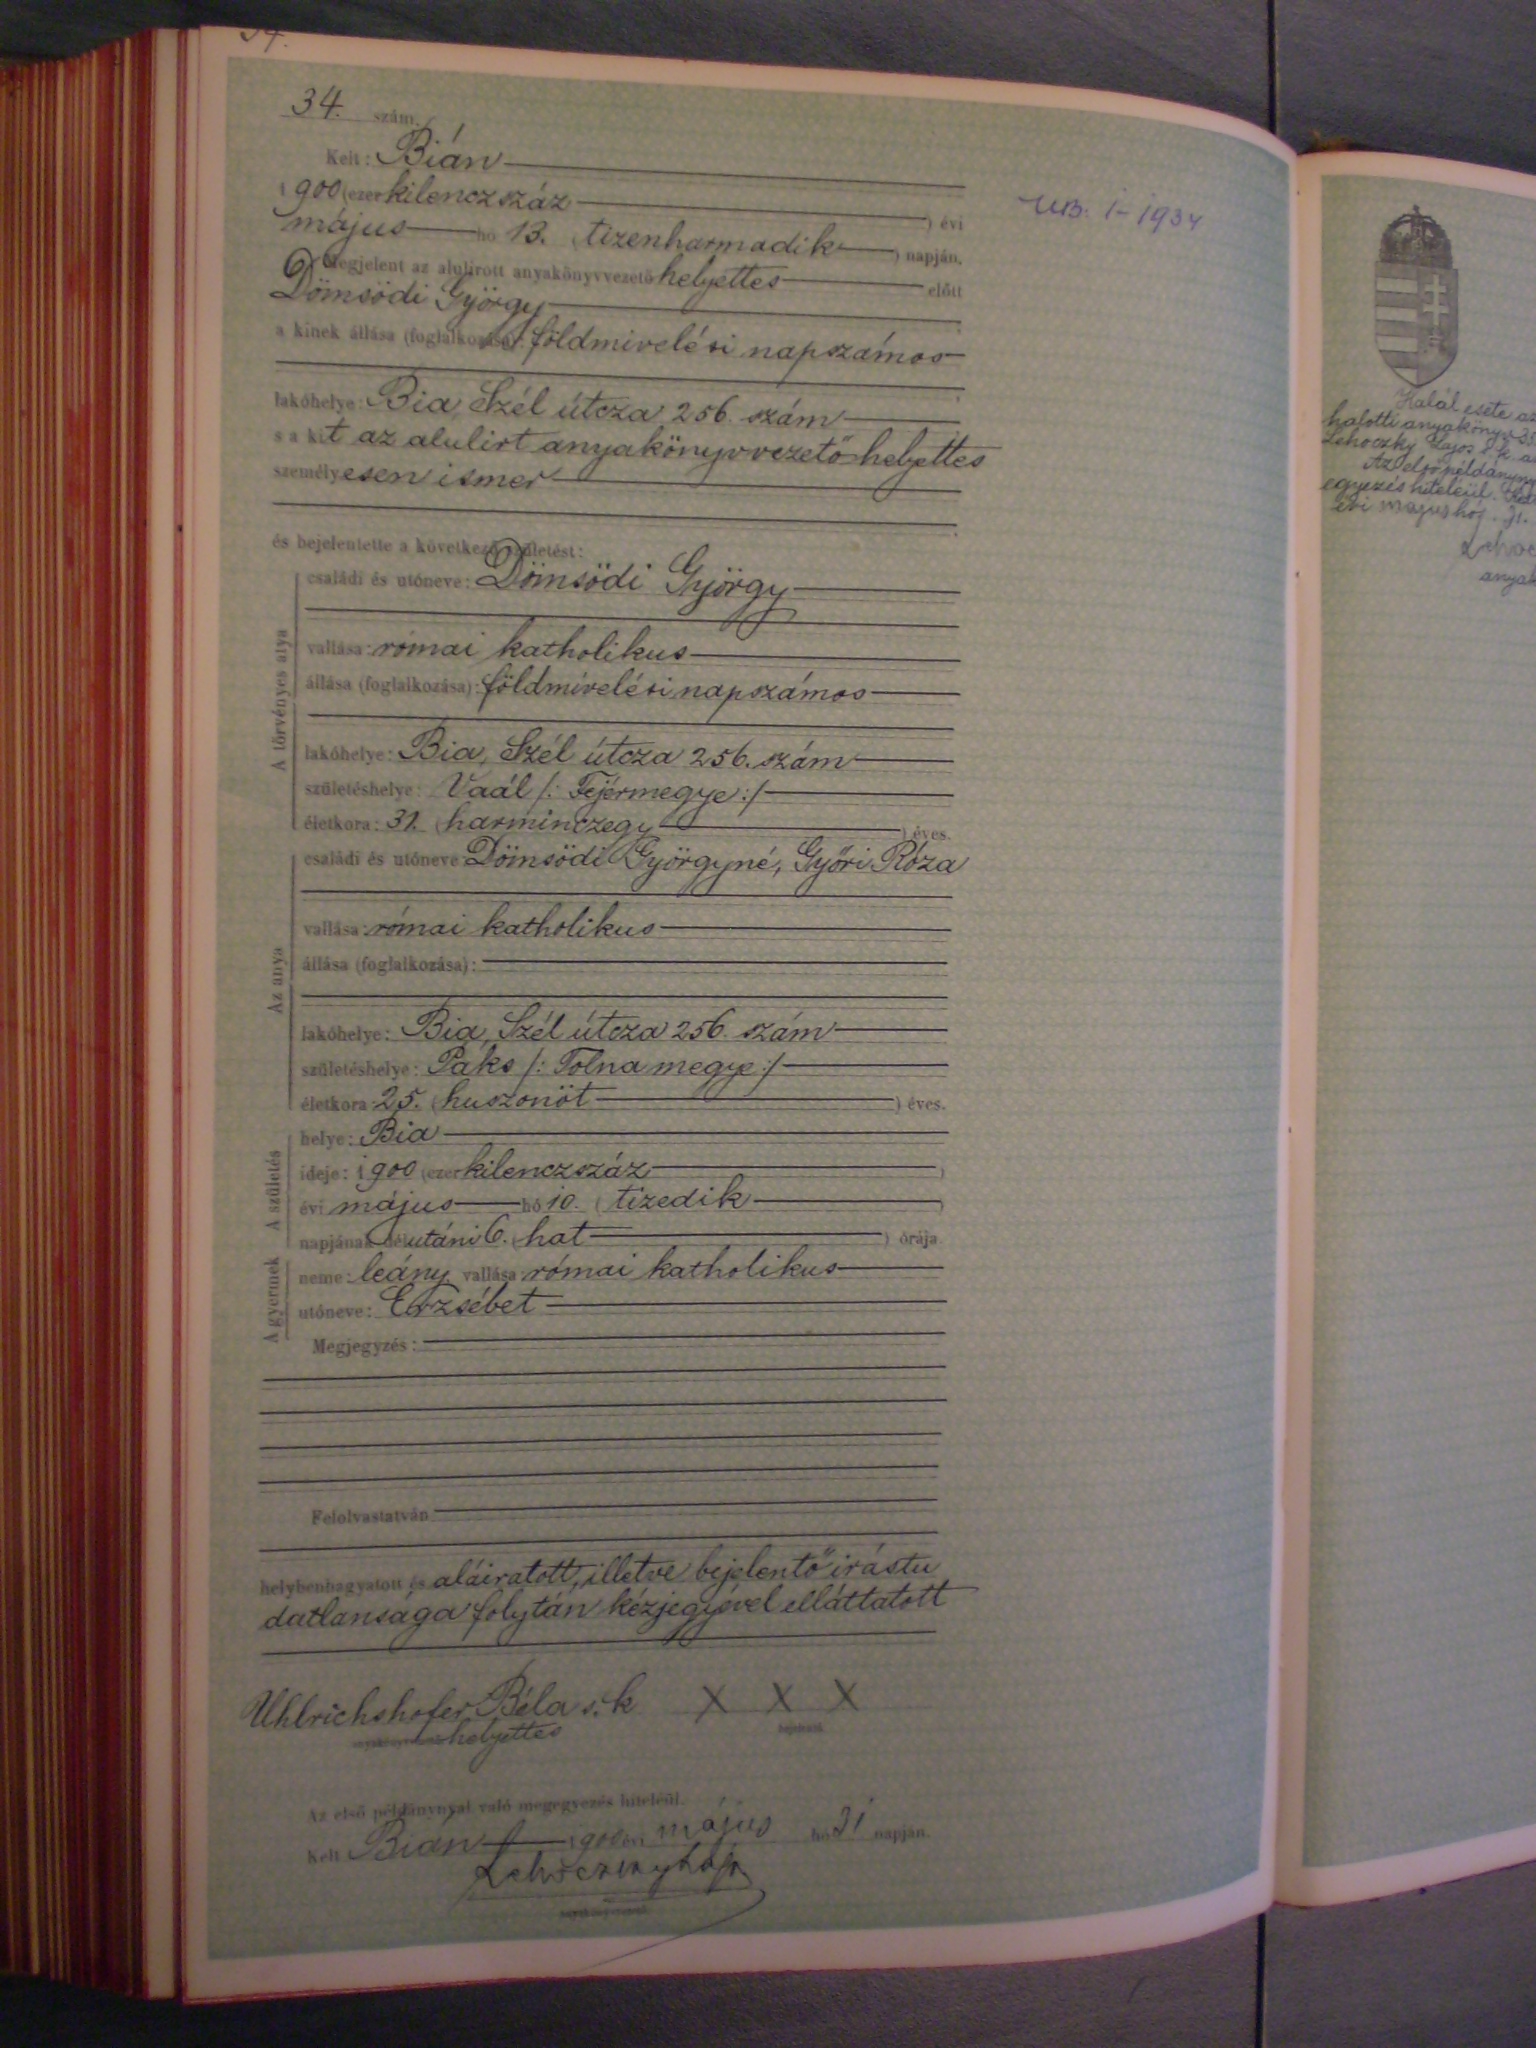 34. szám.
Kelt: Bián
1900 (ezer kilenczszáz ) évi
május hó 13. (tizenharmadik ) napján,
Megjelent az alulirott anyakönyvvezető helyettes előtt
Dömsödi György
a kinek állása (foglalkozása): földmivelési napszámos
lakóhelye: Bia, Szél útcza 256. szám
s a kit az alulirt anyakönyvvezető helyettes
személyesen ismer
és bejelentette a következő születést:
A törvényes atya
családi és utóneve: Dömsödi György
vallása: római katholikus
állása (foglalkozása): földmivelési napszámos
lakóhelye: Bia, Szél útcza 256. szám
születéshelye: Vaál /: Fejérmegye :/
életkora: 31. (harminczegy ) éves.
Az anya
családi és utóneve: Dömsödi Györgyné, Győri Róza
vallása: római katholikus
állása (foglalkozása):
lakóhelye: Bia, Szél útcza 256. szám
születéshelye: Paks /: Tolna megye :/
életkora: 25. (huszonöt ) éves.
A születés
helye: Bia
ideje: 1900 (ezer kilenczszáz )
évi május hó 10. (tizedik )
napjának délutáni 6. (hat ) órája.
A gyermek
neme: leány, vallása: római katholikus
utóneve: Erzsébet
Megjegyzés:
Felolvastatván
helybenhagyatott és aláiratott, illetve bejelentő irástu
datlansága folytán kézjegyével elláttatott
Uhlrichshofer Béla s. k X X X
helyettes bejelentő.
Az első példánynyal való megegyezés hiteléül.
Kelt Bián 1900 évi május hó 31 napján.
anyakönyvvezető.
UB. I-1934
Halál esete az
halotti anyakönyv
Lehoczky Lajos s. k.
Az első példánynyal
egyezés hiteléül.
évi május hó 31.
anyak